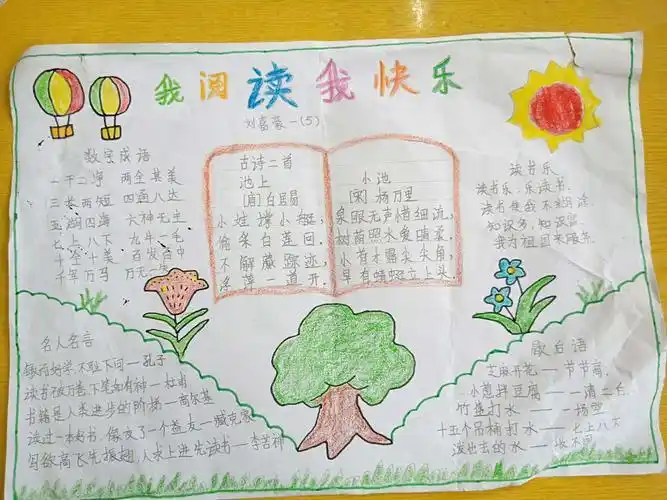 我阅读我快乐
刘富蓉一(5)
数字成语
一干二净 两全其美
三长两短 四通八达
五湖四海 六神无主
七上八下 九牛一毛
十全十美 百发百中
千军万马 万无一失
古诗二首
池上
[唐]白居易
小娃撑小艇,
偷采白莲回.
不解藏踪迹,
浮萍一道开.
小池
[宋]杨万里
泉眼无声惜细流,
树荫照水爱晴柔.
小荷才露尖尖角,
早有蜻蜓立上头.
读书乐
读书乐.乐读书.
读书使我不糊涂
知识多,知识富
我为祖国来服务.
名人名言
敏而好学,不耻下问—孔子
读书破万卷下笔如有神—杜甫
书籍是人类进步的阶梯—高尔基
读过一本好书.像交了一个益友—臧克家
鸟欲高飞先振翅,人求上进先读书—李苦禅
歇后语
芝麻开花——节节高.
小葱拌豆腐——一清二白
竹篮打水——一场空
十五个吊桶打水——七上八下
泼出去的水——收不回